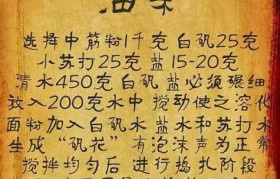 油条
选择中筋粉1千克白矾25克
小苏打25克 盐15-20克
清水450克白矾盐必须碾细
放入200克水中 搅动使之溶化
面粉加入白矾盐水和苏打水
生成“矾花”有泡沫声为正常
搅拌均匀后 进行捣扎阶段